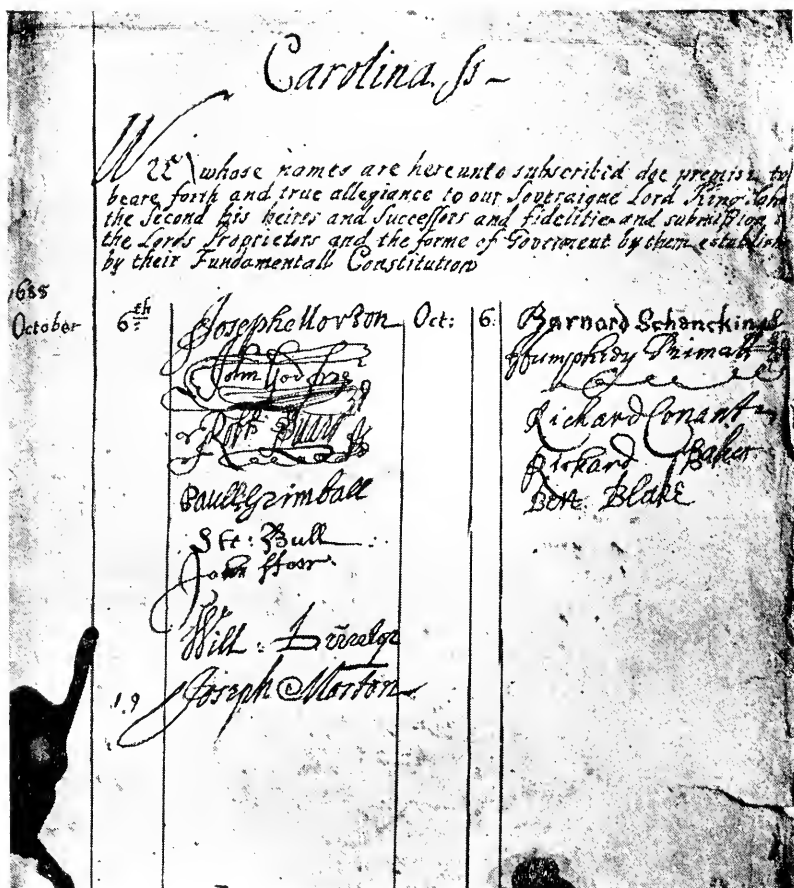 Carolina. ss
Wee whose names are hereunto subscribid doe promise to
beare forth and true allegiance to our Soveraigne Lord King
the Second his heires and Successors and fidelitie and submission
the Lords Proprietors and the forme of Goverment by them establish
by their Fundamentall Constitution
1685
October 6th
Josephe Morton
John
Robt
Paull Grimball
Ste: Bull
John
Will:
19 Joseph Morton
Oct: 6. Barnard Schencking
Humphrey Primatt
Richard Conant
Richard Baker
Ben Blake